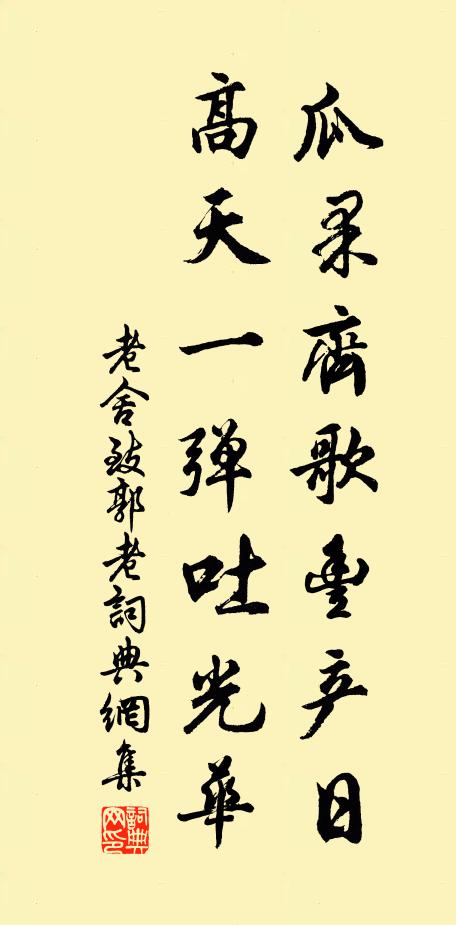 瓜果齊歌豐产日
高天一弹吐光華
老舍致郭老詞典網集
詞典网印